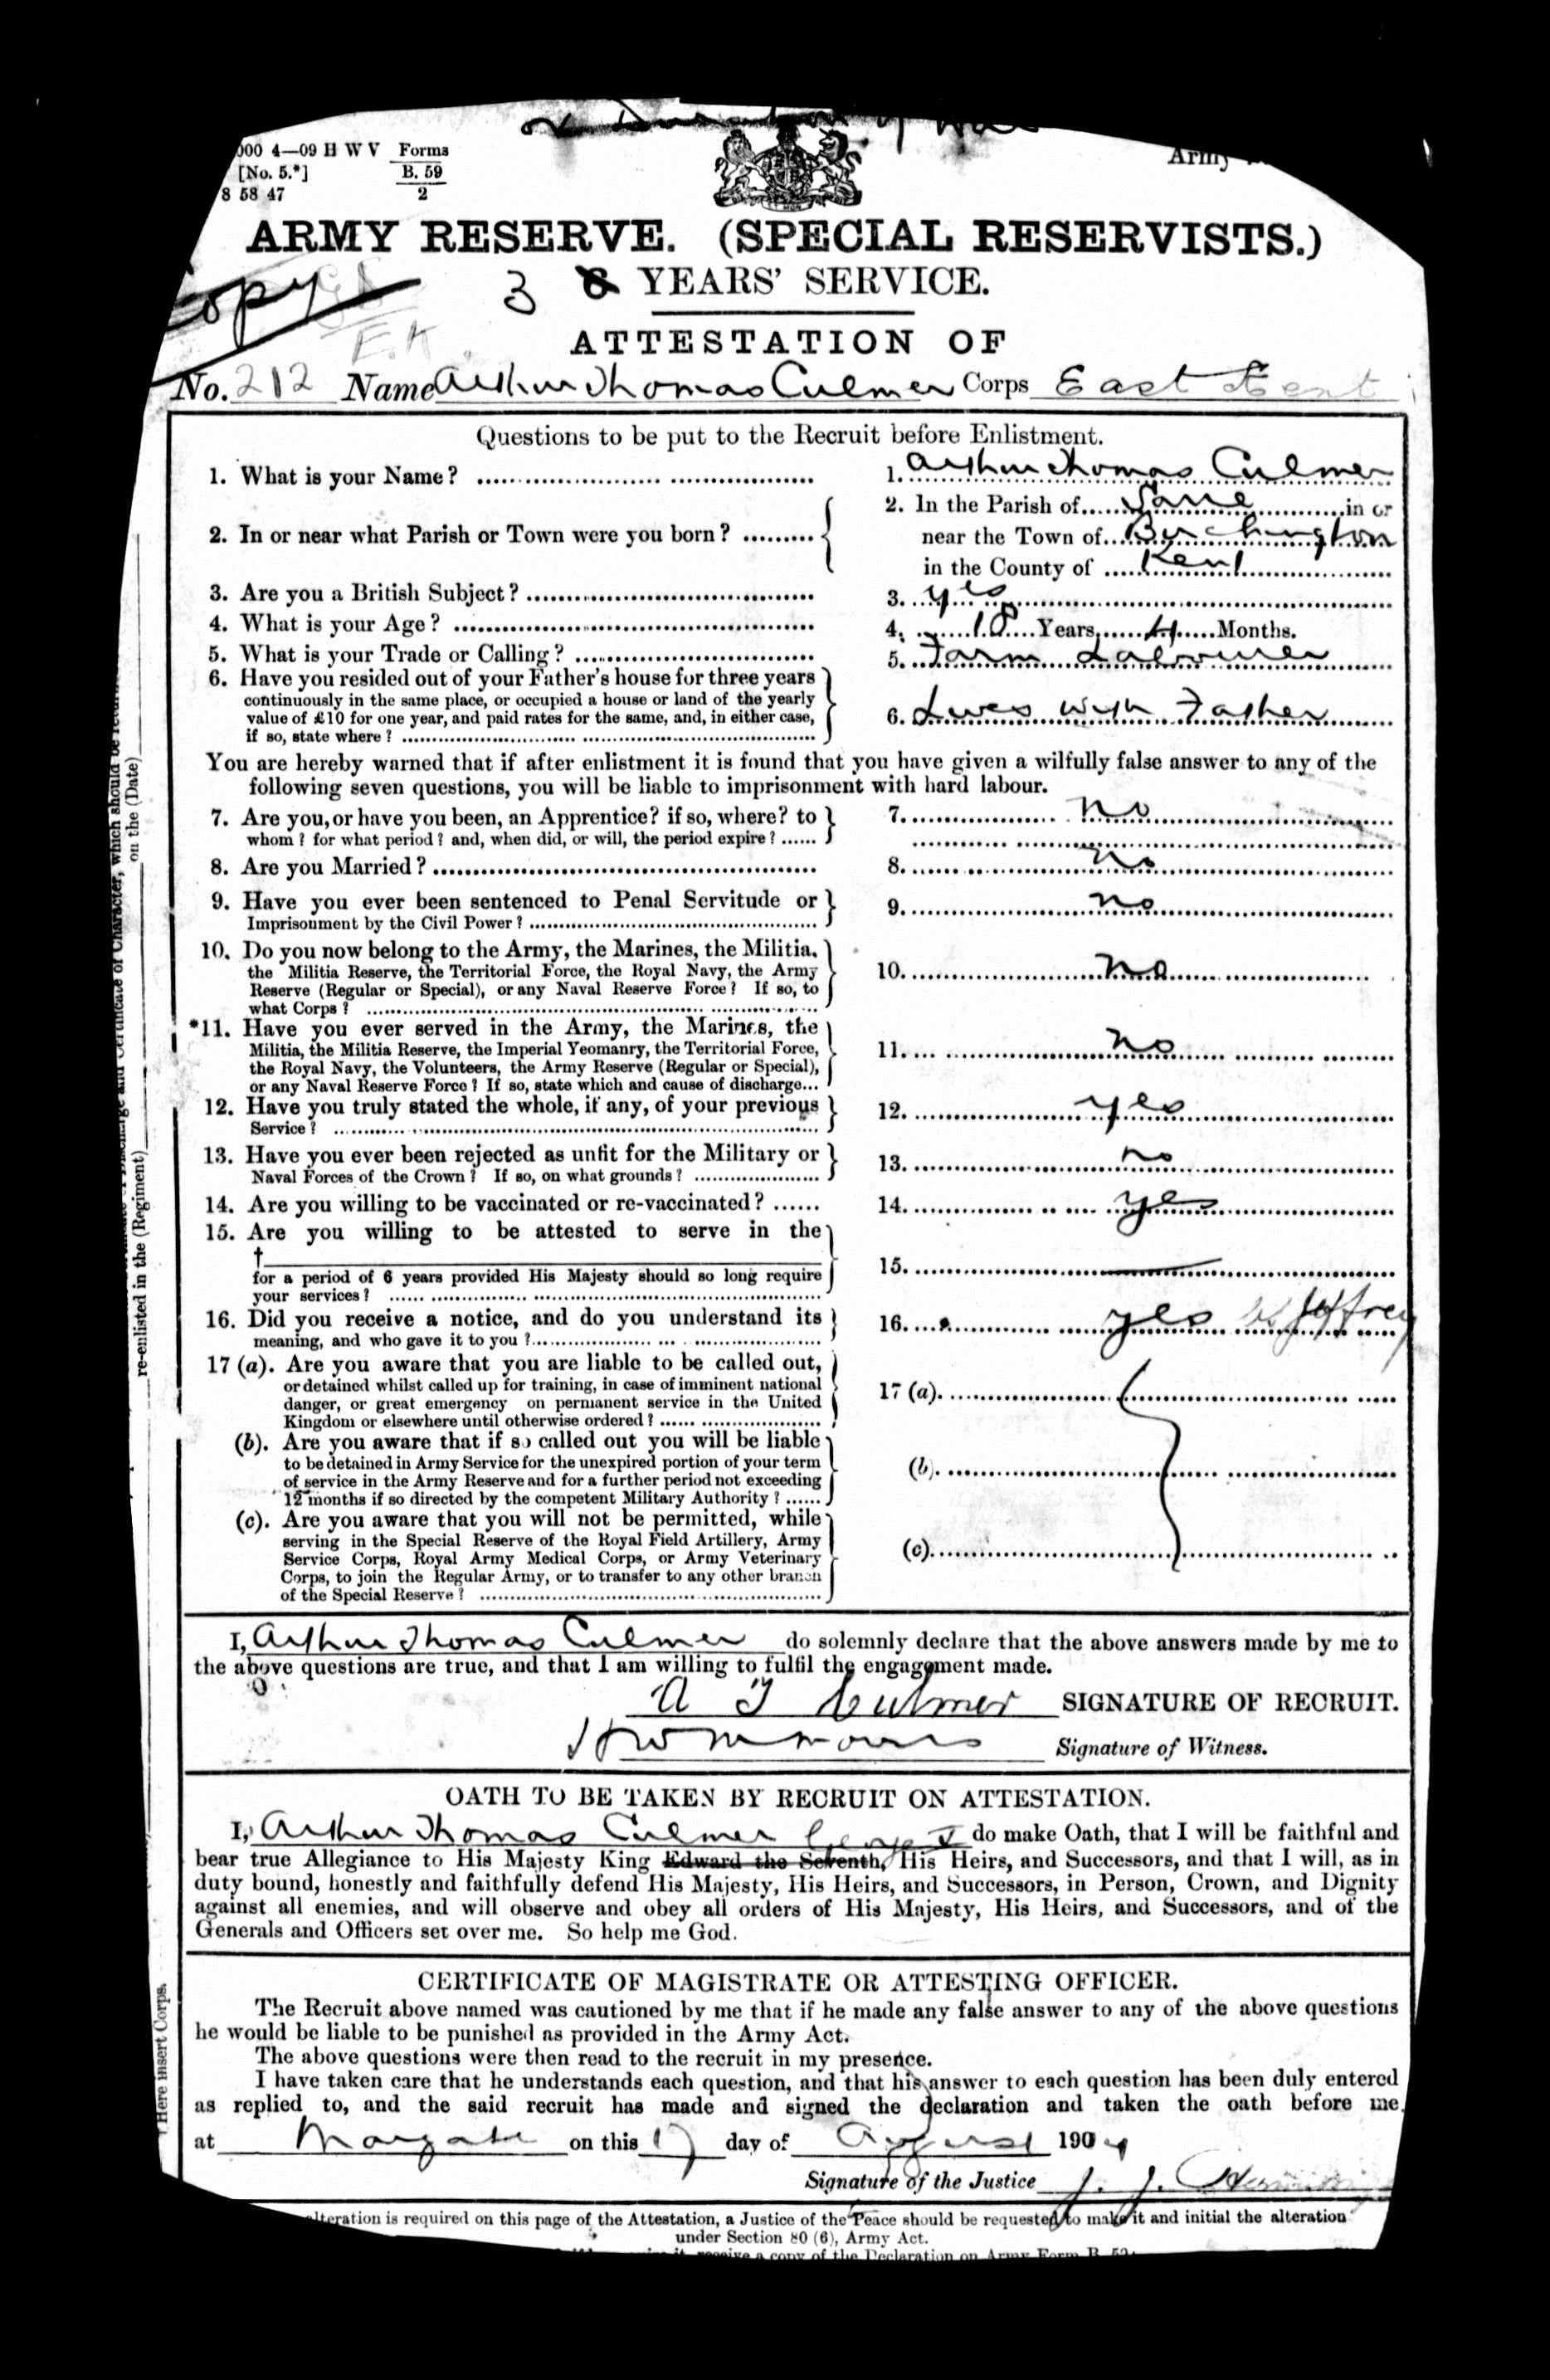 or Duration of War
000 4—09 H W V Forms
[No. 5.*] B. 59
8 58 47 2
Army
ARMY RESERVE. (SPECIAL RESERVISTS.)
Copy
3 6 YEARS' SERVICE.
E.K
ATTESTATION OF
No. 212 Name Arthur Thomas Culmer Corps East Kent
Questions to be put to the Recruit before Enlistment.
1. What is your Name? 1. Arthur Thomas Culmer
2. In or near what Parish or Town were you born? 2. In the Parish of Sarre in or
near the Town of Birchington
in the County of Kent
3. Are you a British Subject? 3. yes
4. What is your Age? 4. 18 Years 4 Months.
5. What is your Trade or Calling? 5. Farm Labourer
6. Have you resided out of your Father's house for three years
continuously in the same place, or occupied a house or land of the yearly
value of £10 for one year, and paid rates for the same, and, in either case,
if so, state where? 6. Lives with Father
You are hereby warned that if after enlistment it is found that you have given a wilfully false answer to any of the
following seven questions, you will be liable to imprisonment with hard labour.
7. Are you, or have you been, an Apprentice? if so, where? to 7. no
whom? for what period? and, when did, or will, the period expire?
8. Are you Married? 8. no
9. Have you ever been sentenced to Penal Servitude or 9. no
Imprisonment by the Civil Power?
10. Do you now belong to the Army, the Marines, the Militia,
the Militia Reserve, the Territorial Force, the Royal Navy, the Army 10. no
Reserve (Regular or Special), or any Naval Reserve Force? If so, to
what Corps?
*11. Have you ever served in the Army, the Marines, the
Militia, the Militia Reserve, the Imperial Yeomanry, the Territorial Force, 11. no
the Royal Navy, the Volunteers, the Army Reserve (Regular or Special),
or any Naval Reserve Force? If so, state which and cause of discharge...
12. Have you truly stated the whole, if any, of your previous 12. yes
Service?
13. Have you ever been rejected as unfit for the Military or 13. no
Naval Forces of the Crown? If so, on what grounds?
14. Are you willing to be vaccinated or re-vaccinated? 14. yes
15. Are you willing to be attested to serve in the
†
for a period of 6 years provided His Majesty should so long require 15.
your services?
16. Did you receive a notice, and do you understand its 16. yes Jeffrey
meaning, and who gave it to you?
17 (a). Are you aware that you are liable to be called out,
or detained whilst called up for training, in case of imminent national 17 (a).
danger, or great emergency on permanent service in the United
Kingdom or elsewhere until otherwise ordered?
(b). Are you aware that if so called out you will be liable
to be detained in Army Service for the unexpired portion of your term (b).
of service in the Army Reserve and for a further period not exceeding
12 months if so directed by the competent Military Authority?
(c). Are you aware that you will not be permitted, while
serving in the Special Reserve of the Royal Field Artillery, Army (c).
Service Corps, Royal Army Medical Corps, or Army Veterinary
Corps, to join the Regular Army, or to transfer to any other branch
of the Special Reserve?
I, Arthur Thomas Culmer do solemnly declare that the above answers made by me to
the above questions are true, and that I am willing to fulfil the engagement made.
A T Culmer SIGNATURE OF RECRUIT.
Signature of Witness.
OATH TO BE TAKEN BY RECRUIT ON ATTESTATION.
I, Arthur Thomas Culmer George V do make Oath, that I will be faithful and
bear true Allegiance to His Majesty King Edward the Seventh, His Heirs, and Successors, and that I will, as in
duty bound, honestly and faithfully defend His Majesty, His Heirs, and Successors, in Person, Crown, and Dignity
against all enemies, and will observe and obey all orders of His Majesty, His Heirs, and Successors, and of the
Generals and Officers set over me. So help me God.
CERTIFICATE OF MAGISTRATE OR ATTESTING OFFICER.
The Recruit above named was cautioned by me that if he made any false answer to any of the above questions
he would be liable to be punished as provided in the Army Act.
The above questions were then read to the recruit in my presence.
I have taken care that he understands each question, and that his answer to each question has been duly entered
as replied to, and the said recruit has made and signed the declaration and taken the oath before me
at Margate on this 17 day of August 1904
Signature of the Justice J. J.
alteration is required on this page of the Attestation, a Justice of the Peace should be requested to make it and initial the alteration
under Section 80 (6), Army Act.
receive a copy of the Declaration on Army Form B. 59.
Discharge and Certificate of Character, which should be
re-enlisted in the (Regiment) on the (Date)
† Here insert Corps.